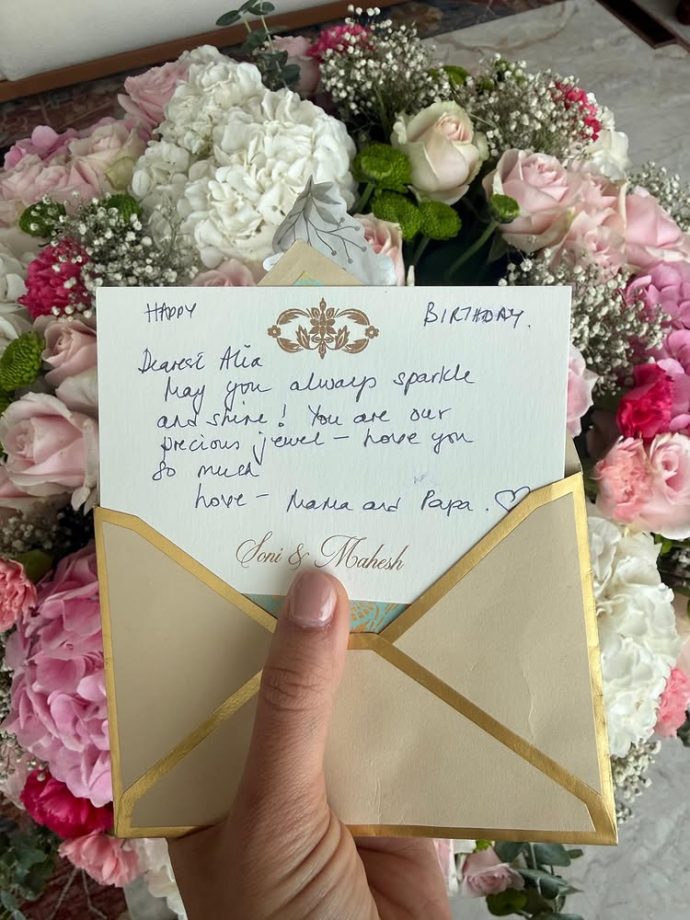 HAPPY BIRTHDAY.
Dearest Alia
May you always sparkle
and shine! You are our
precious jewel – Love you
so much
Love – Mama and Papa. ♡
Soni & Mahesh